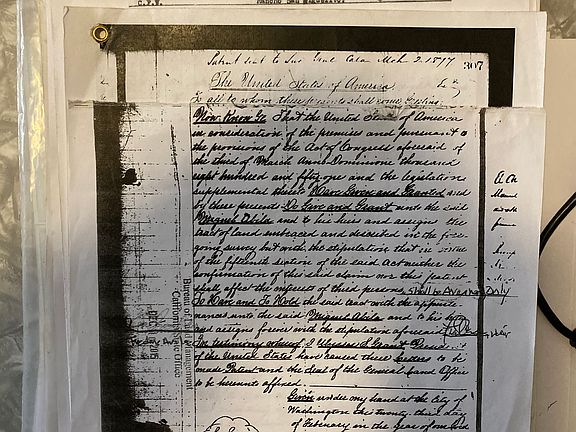 Rancho San
Patent sent to Sur. Genl. Cala Mch 2. 1877
307
The United States of America
To all to whom these presents shall come Greeting
Now Know Ye That the United States of America
in consideration of the premises and pursuant to
the provisions of the Act of Congress aforesaid of
the third of March Anno Domini one thousand
eight hundred and fifty one and the legislation
supplemental thereto Have Given and Granted and
by these presents Do Give and Grant unto the said
Miguel Abila and to his heirs and assigns the
tract of land embraced and described in the fore-
going survey but with the stipulation that in virtue
of the fifteenth section of the said Act neither the
confirmation of this said claim nor this patent
shall affect the interest of third persons
To Have and To Hold the said tract with the appurte
nances unto the said Miguel Abila and to his
and assigns forever with the stipulation aforesaid
In testimony whereof I Ulysses S. Grant
of the United States have caused these letters to be
made Patent and the Seal of the General Land Office
to be hereunto affixed
Given under my hand at the City of
Washington the twenty third day
of February in the year of our Lord
Bureau of Land Management
California State Office